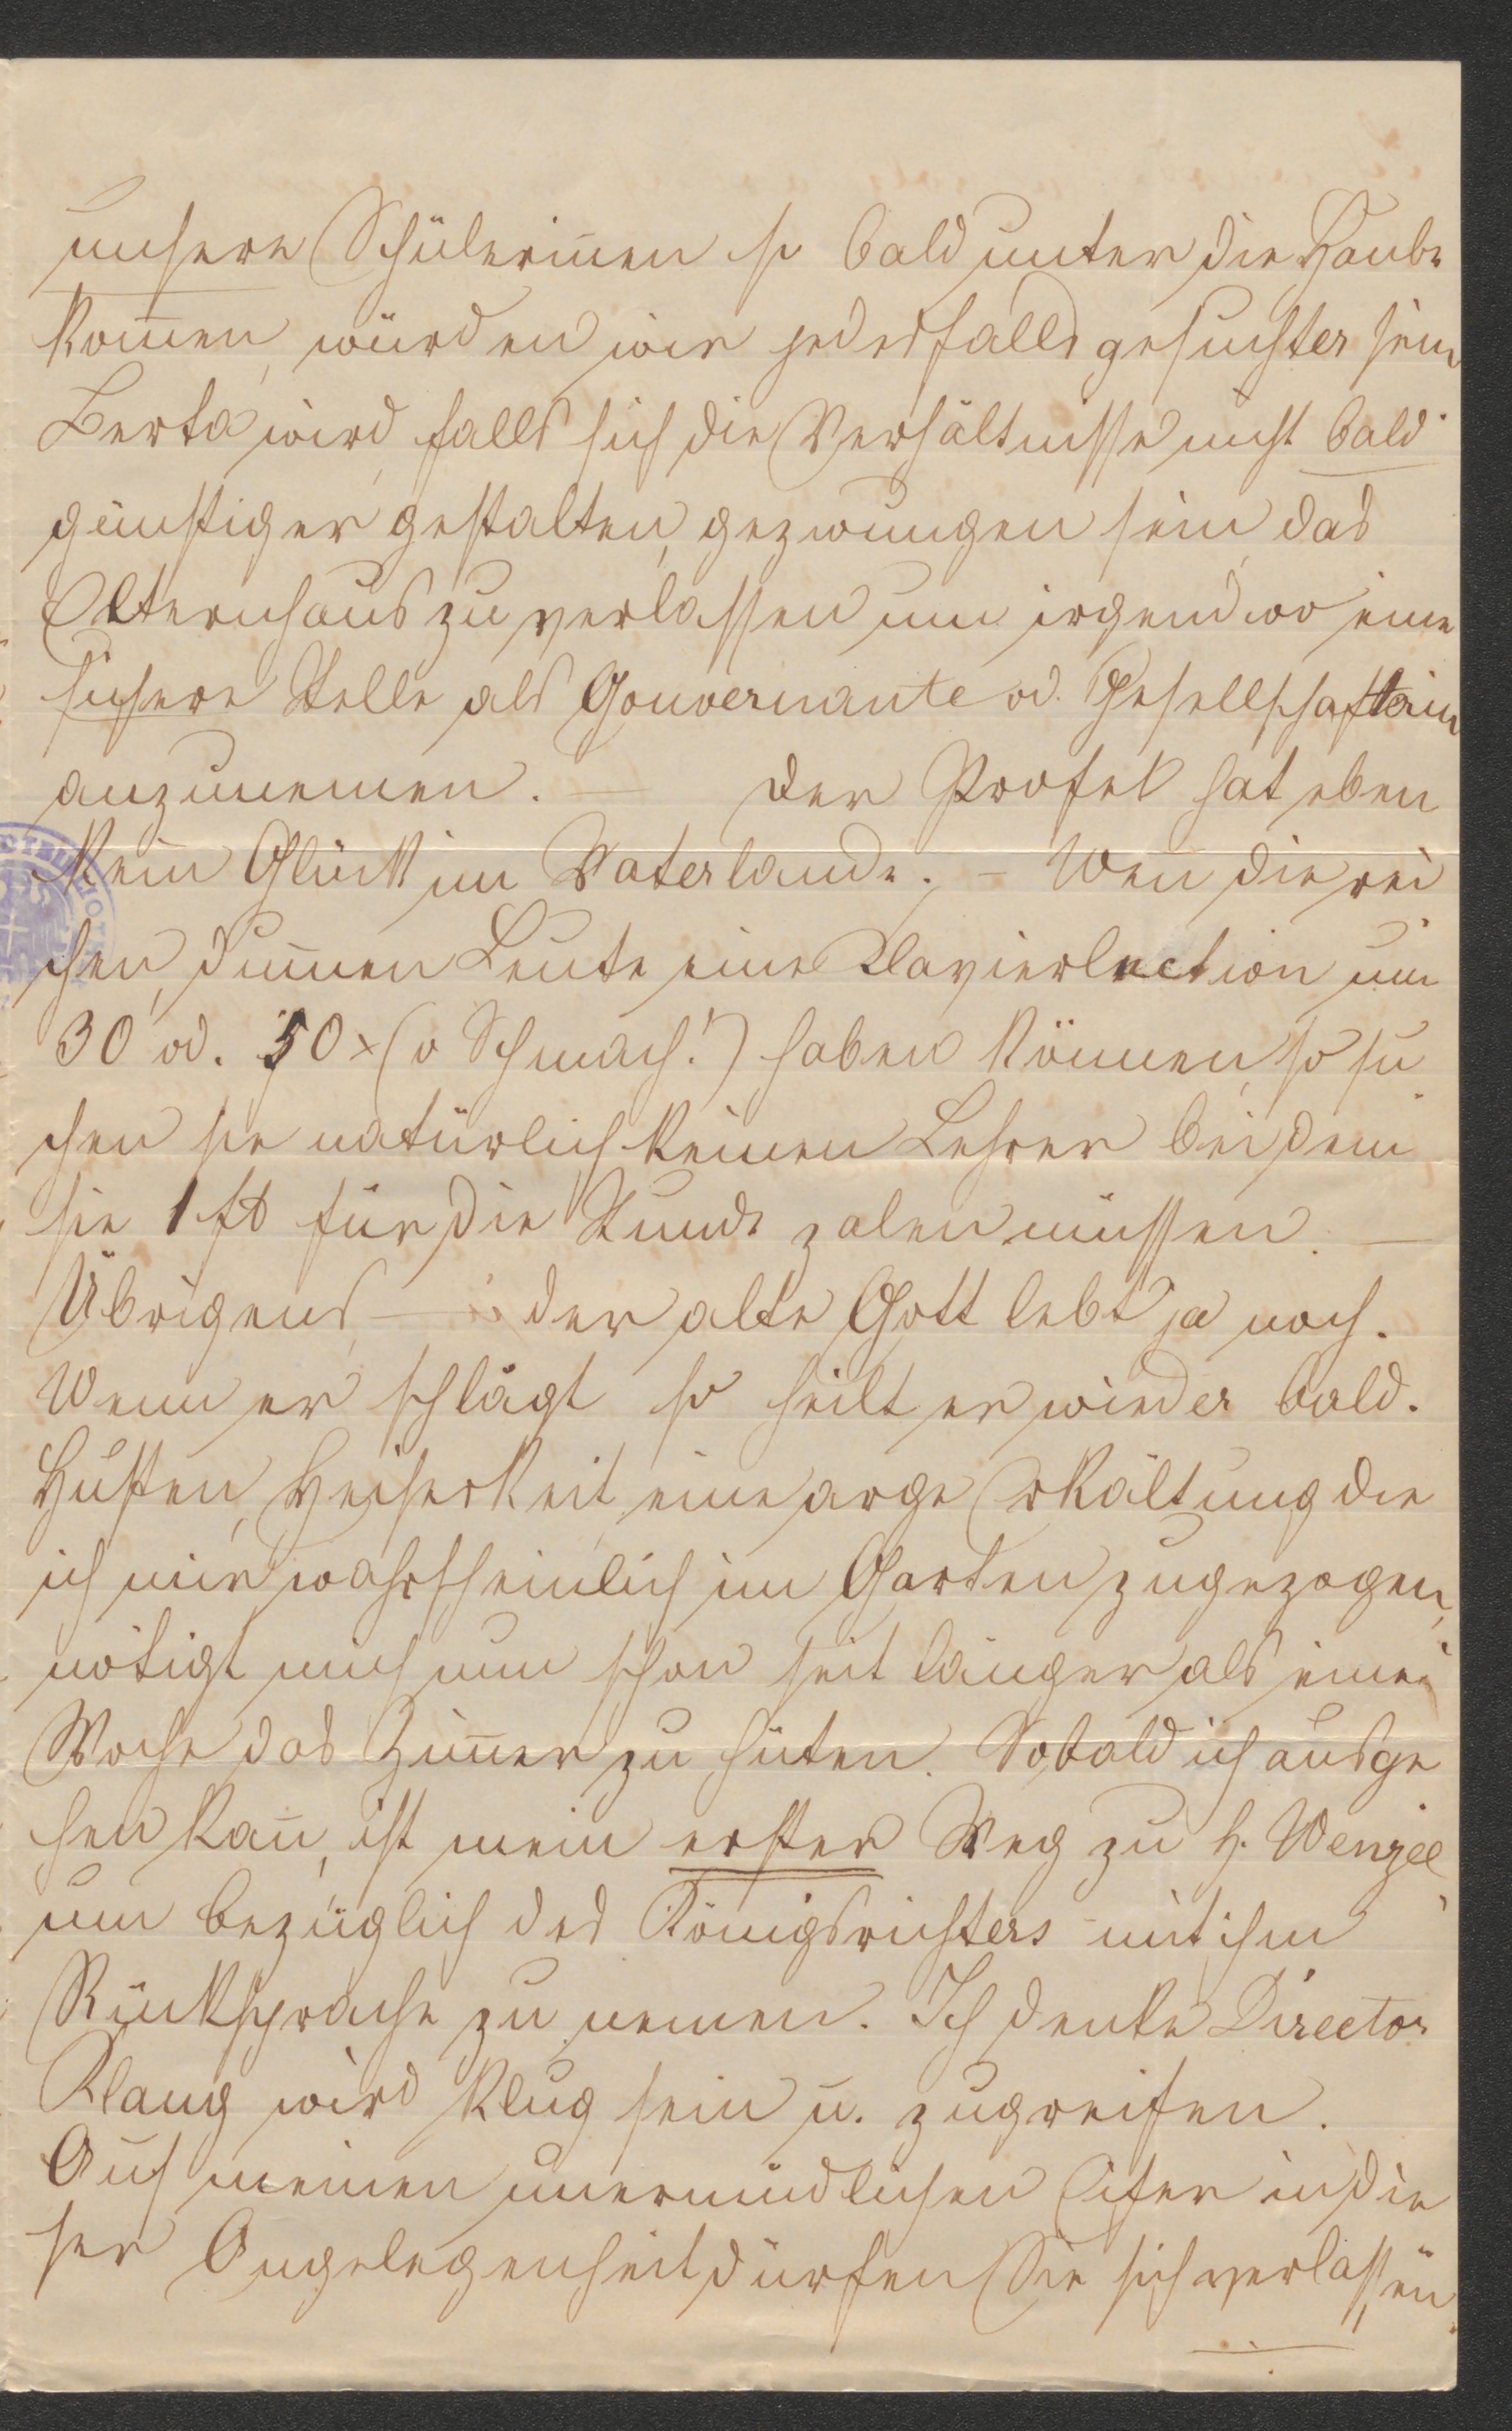 unsere Schülerinnen so bald unter die Haube
kom̄en, würden wir jedesfalls gesuchter sein
Berta wird, falls sich die Verhältnisse nicht bald
günstiger gestalten, gezwungen sein, das
Elternhaus zu verlassen um irgendwo eine
sichere Stelle als Gouvernante od. Gesellschafterin
anzunemen. — Der Profet hat eben
kein Glück im Vaterlande. – Wen̄ die rei
chen, dum̄en Leute eine Clavierlection um
30 od. 50 x (o Schmach!) haben können, so su
chen sie natürlich keinen Lehrer bei dem
sie 1 fl für die Stunde zalen müssen. —
Übrigens — der alte Gott lebt ja noch.
Wenn er schlägt so heilt er wieder bald.
Husten, Heiserkeit, eine arge Erkältung die
ich mir wahrscheinlich im Garten zugezogen,
nötigt mich nun schon seit länger als einer
Woche das Zim̄er zu hüten. Sobald ich ausge
hen kan̄, ist mein erster Weg zu H. Wenzel
um bezüglich des Königsrichters mit ihm
Rücksprache zu nemen. Ich denke Director
Klang wird klug sein u. zugreifen.
Auf meinen unermüdlichen Eifer in die
ser Angelegenheit dürfen Sie sich verlassen.